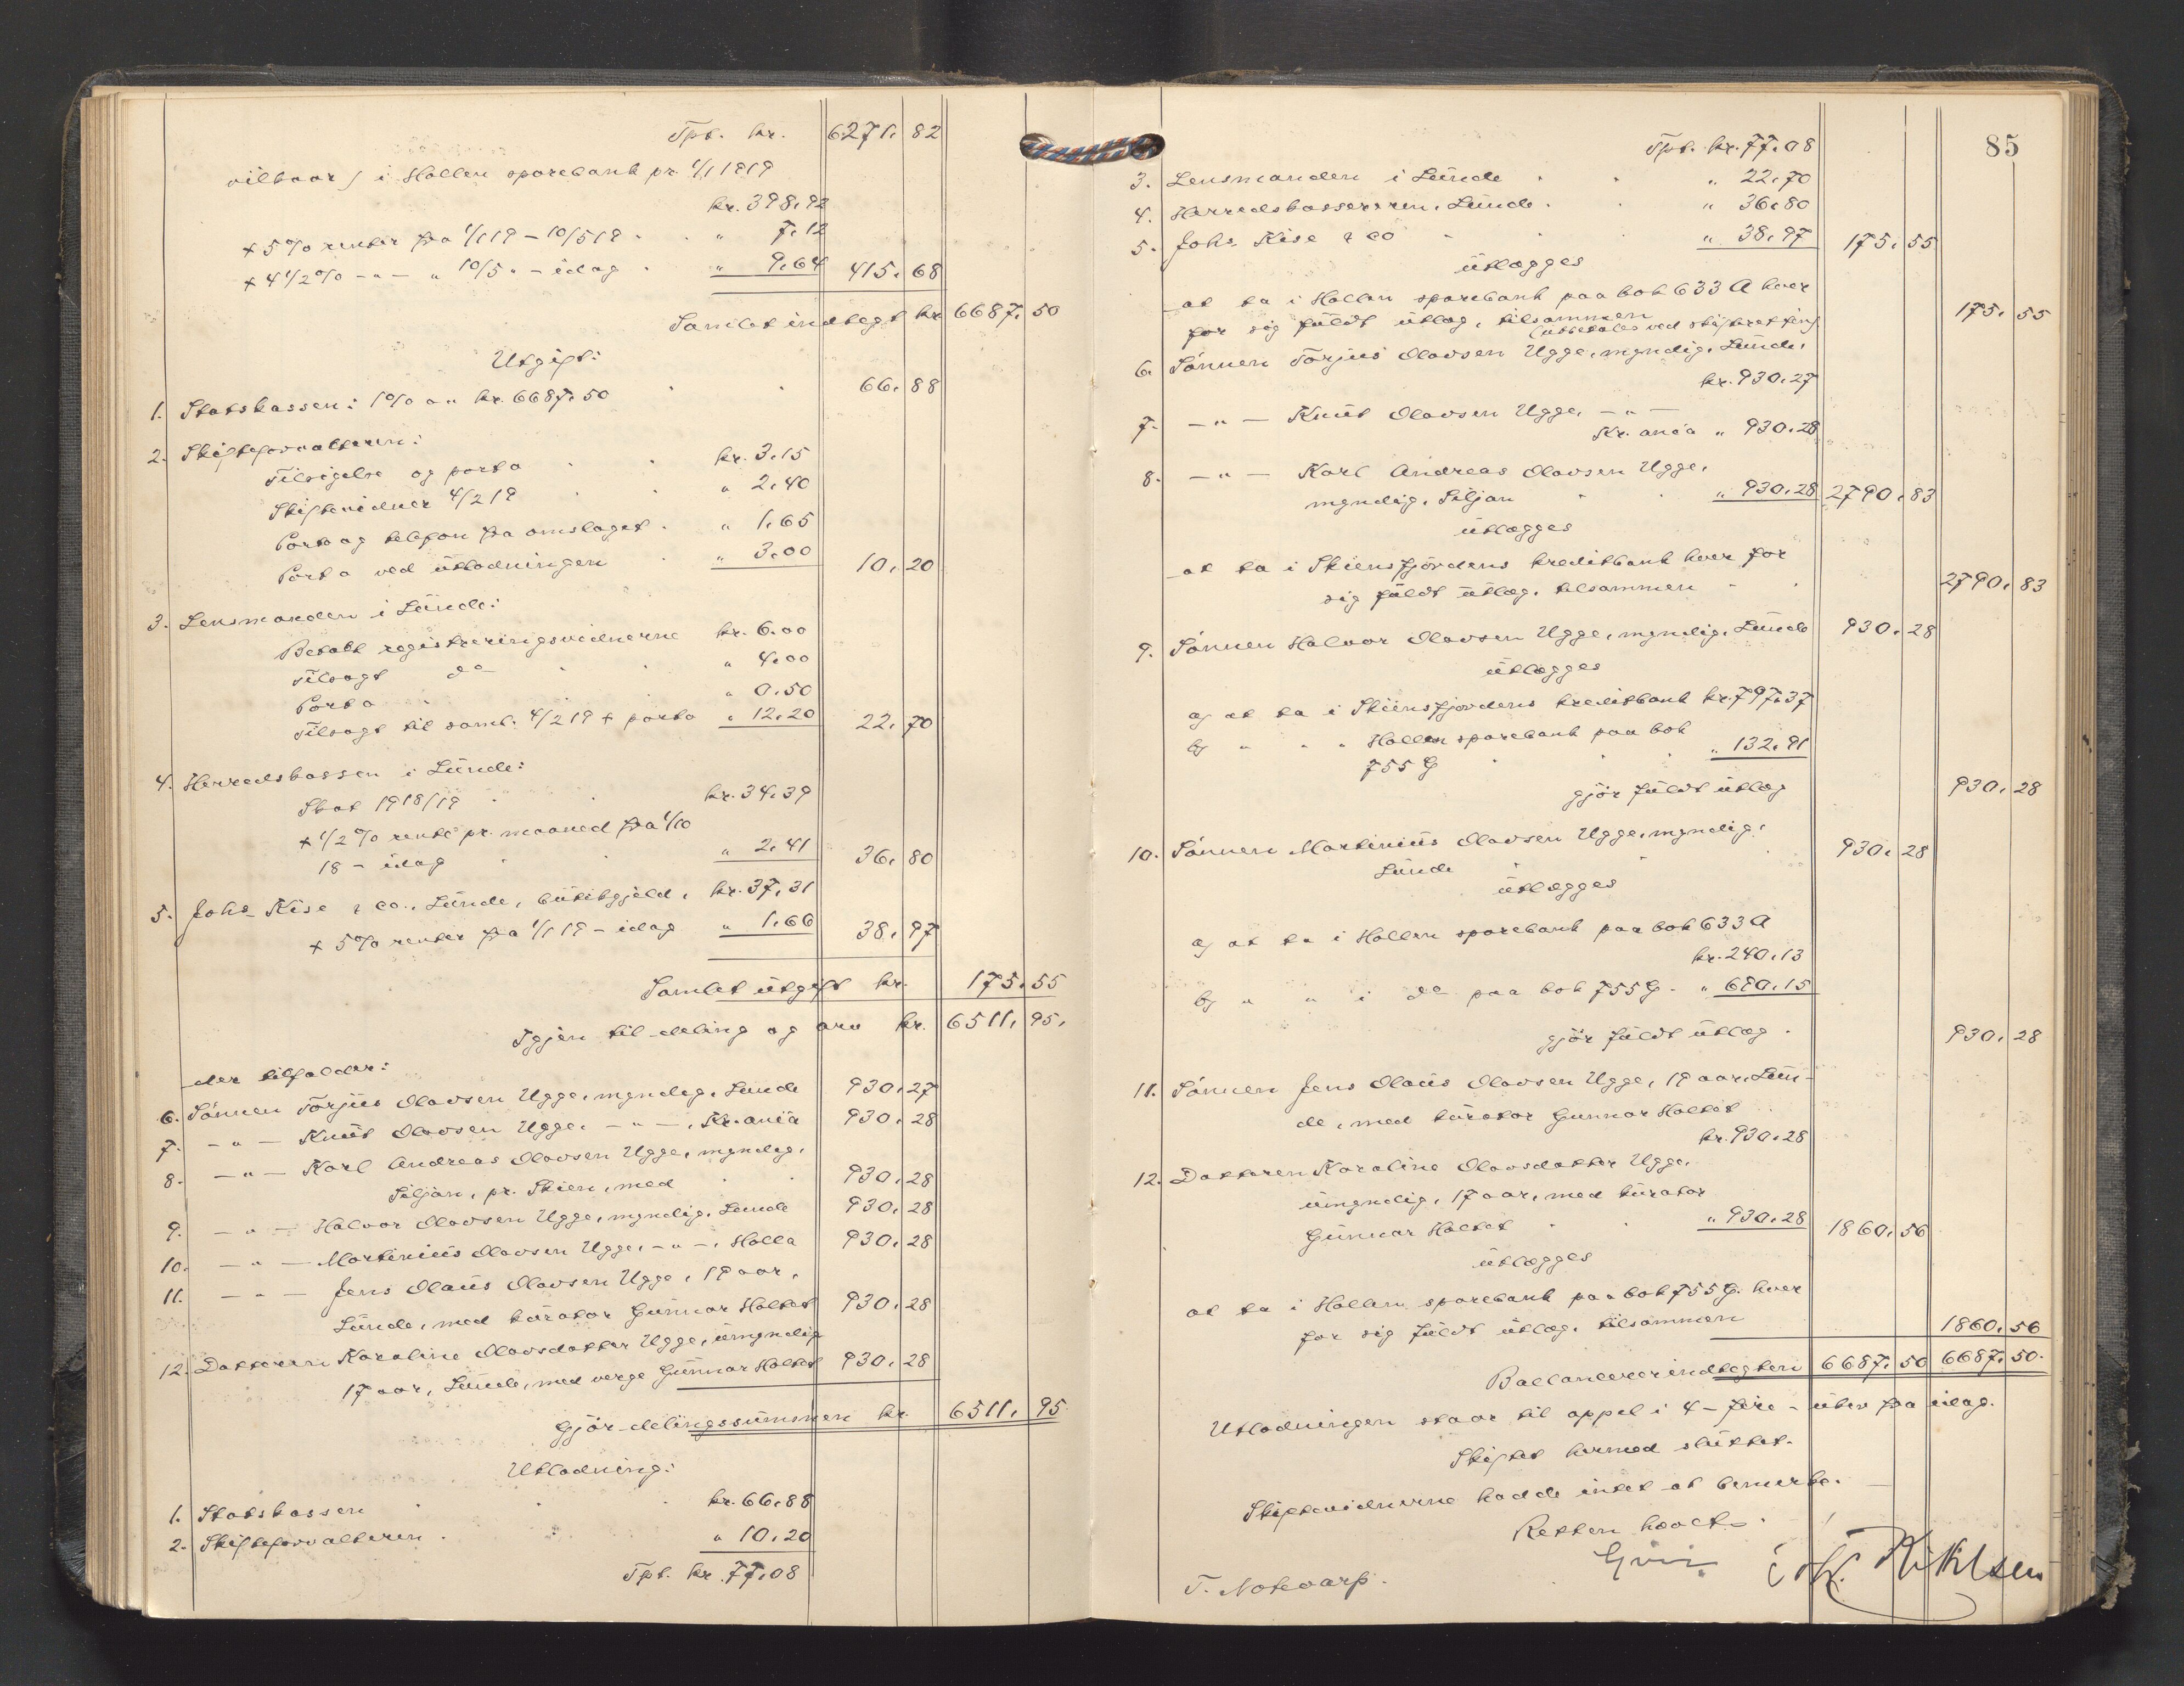 Tpt. kr. 6271. 82
vilkaar) i Hollen sparebank pr. 1/1 1919
kr. 398.92
+ 5 % renter fra 1/1 19 – 10/5 19 . . " 7.12
+ 4 1/2 % – " – " 10/5 " – idag . " 9.64 415. 68
Samlet indtegt kr. 6687. 50
Utgift:
1. Statskassen: 1 % av kr. 6687.50 . . 66. 88
2. Skifteforvalteren:
Tilsigelse og porto . . kr. 3.15
Skiftevidner 4/2 19 . . " 2.40
Porto og telefon fra omslaget . " 1.65
Porto ved utlodningen . " 3.00 10. 20
3. Lensmanden i Lunde:
Betalt registreringsvidnerne kr. 6.00
Tilsagt do . . " 4.00
Porto . . " 0.50
Tilsagt til saml. 4/2 19 + porto " 12.20 22. 70
4. Herredskassen i Lunde:
Skat 1918/19 . . kr. 34.39
+ 1/2 % rente pr. maaned fra 1/10
18 – idag . . " 2.41 36. 80
5. Johs Kise & co., Lunde, butikgjeld, kr. 37.31
+ 5 % renter fra 1/1 19 – idag " 1.66 38. 97
Samlet utgift kr. 175. 55
Igjen til deling og arv kr. 6511. 95.
der tilfalder:
6. Sønnen Torjus Olavsen Ugge, myndig, Lunde 930. 27
7. – " – Knut Olavsen Ugge, – " – , Kr.ania 930. 28
8. – " – Karl Andreas Olavsen Ugge, myndig,
Siljan, pr. Skien, med . . 930. 28
9. – " – Halvor Olavsen Ugge, myndig, Lunde 930. 28
10. – " – Martinius Olavsen Ugge, – " – , Holla 930. 28
11. – " – Jens Olaus Olavsen Ugge, 19 aar,
Lunde, med kurator Gunnar Holtet 930. 28
12. Datteren Karoline Olavsdatter Ugge, umyndig
17 aar, Lunde, med verge Gunnar Holtet 930. 28
Gjør delingssummen kr. 6511. 95.
Utlodning:
1. Statskassen . . . kr. 66.88
2. Skifteforvalteren . . " 10.20
Tpt. kr. 77.08
85
Tpt. kr. 77.08
3. Lensmanden i Lunde . . " 22.70
4. Herredskassereren, Lunde . . " 36.80
5. Johs Kise & co . . . " 38.97 175. 55
utlægges
at ta i Hollen sparebank paa bok 633 A hver
for sig fuldt utlæg, tilsammen 175. 55
(utbetales ved skifteretten)
6. Sønnen Torjus Olavsen Ugge, myndig, Lunde,
kr. 930.27
7. – " – Knut Olavsen Ugge, – " –
Kr.ania " 930.28
8. – " – Karl Andreas Olavsen Ugge,
myndig, Siljan . . " 930.28 2790. 83
utlægges
at ta i Skiensfjordens kreditbank hver for
sig fuldt utlæg, tilsammen . . 2790. 83
9. Sønnen Halvor Olavsen Ugge, myndig, Lunde 930. 28
utlægges
a) at ta i Skiensfjordens kreditbank kr. 797.37
b) " " " Hollen sparebank paa bok
755 G . . " 132.91
gjør fuldt utlæg 930. 28
10. Sønnen Martinius Olavsen Ugge, myndig,
Lunde . . . 930. 28
utlægges
a) at ta i Hollen sparebank paa bok 633 A
kr. 240.13
b) " " i do paa bok 755 G . " 690.15
gjør fuldt utlæg . 930. 28
11. Sønnen Jens Olaus Olavsen Ugge, 19 aar, Lun-
de, med kurator Gunnar Holtet
kr. 930.28
12. Datteren Karoline Olavsdatter Ugge,
umyndig, 17 aar, med kurator
Gunnar Holtet . . " 930.28 1860. 56
utlægges
at ta i Hollen sparebank paa bok 755 G. hver
for sig fuldt utlæg, tilsammen 1860. 56
Ballancerer indtegten 6687. 50 6687. 50.
Utlodningen staar til appel i 4 – fire – uker fra idag.
Skiftet hermed sluttet.
Skiftevidnerne hadde intet at bemerke.
Retten hævet.
T. Notevarp.